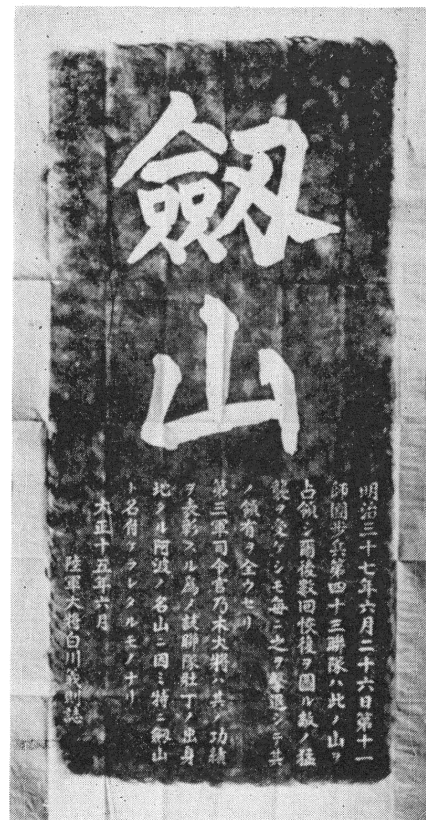 劔山
明治三十七年六月二十六日第十一
師團歩兵第四十三聯隊ハ此ノ山ヲ
占領シ爾後數回恢復ヲ圖ル敵ノ猛
襲ヲ受ケシモ毎ニ之ヲ撃退シテ其
ノ領有ヲ全ウセリ
第三軍司令官乃木大將ハ其ノ功績
ヲ表彰スル爲ノ該聯隊壯丁ノ出身
地タル阿波ノ名山ニ因ミ特ニ劔山
ト名付ケラレタルモノナリ
大正十五年六月
陸軍大將白川義則誌